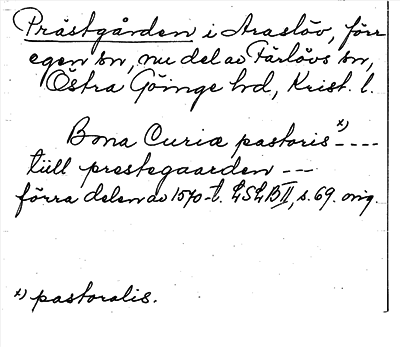 Prästgården i Araslöv, förr
egen sn, nu del av Färlövs sn,
Östra Göinge hd, Krist. l.
Bona Curiæ pastoris x) ----
tiill prestegaarden ---
förra delen av 1570-t. LSLB II, s. 69. orig.
x) pastoralis.